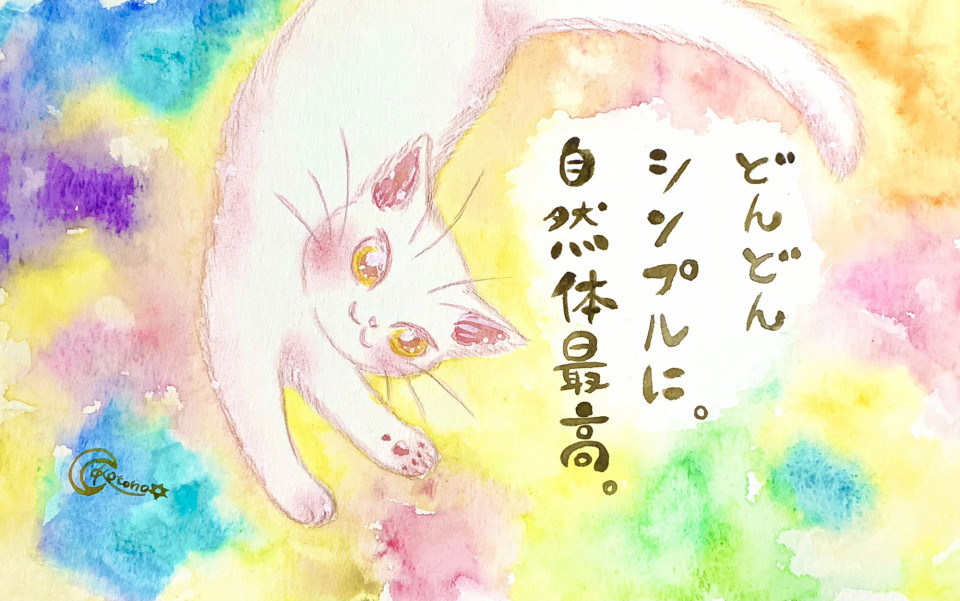 どんどん
シンプルに。
自然体最高。